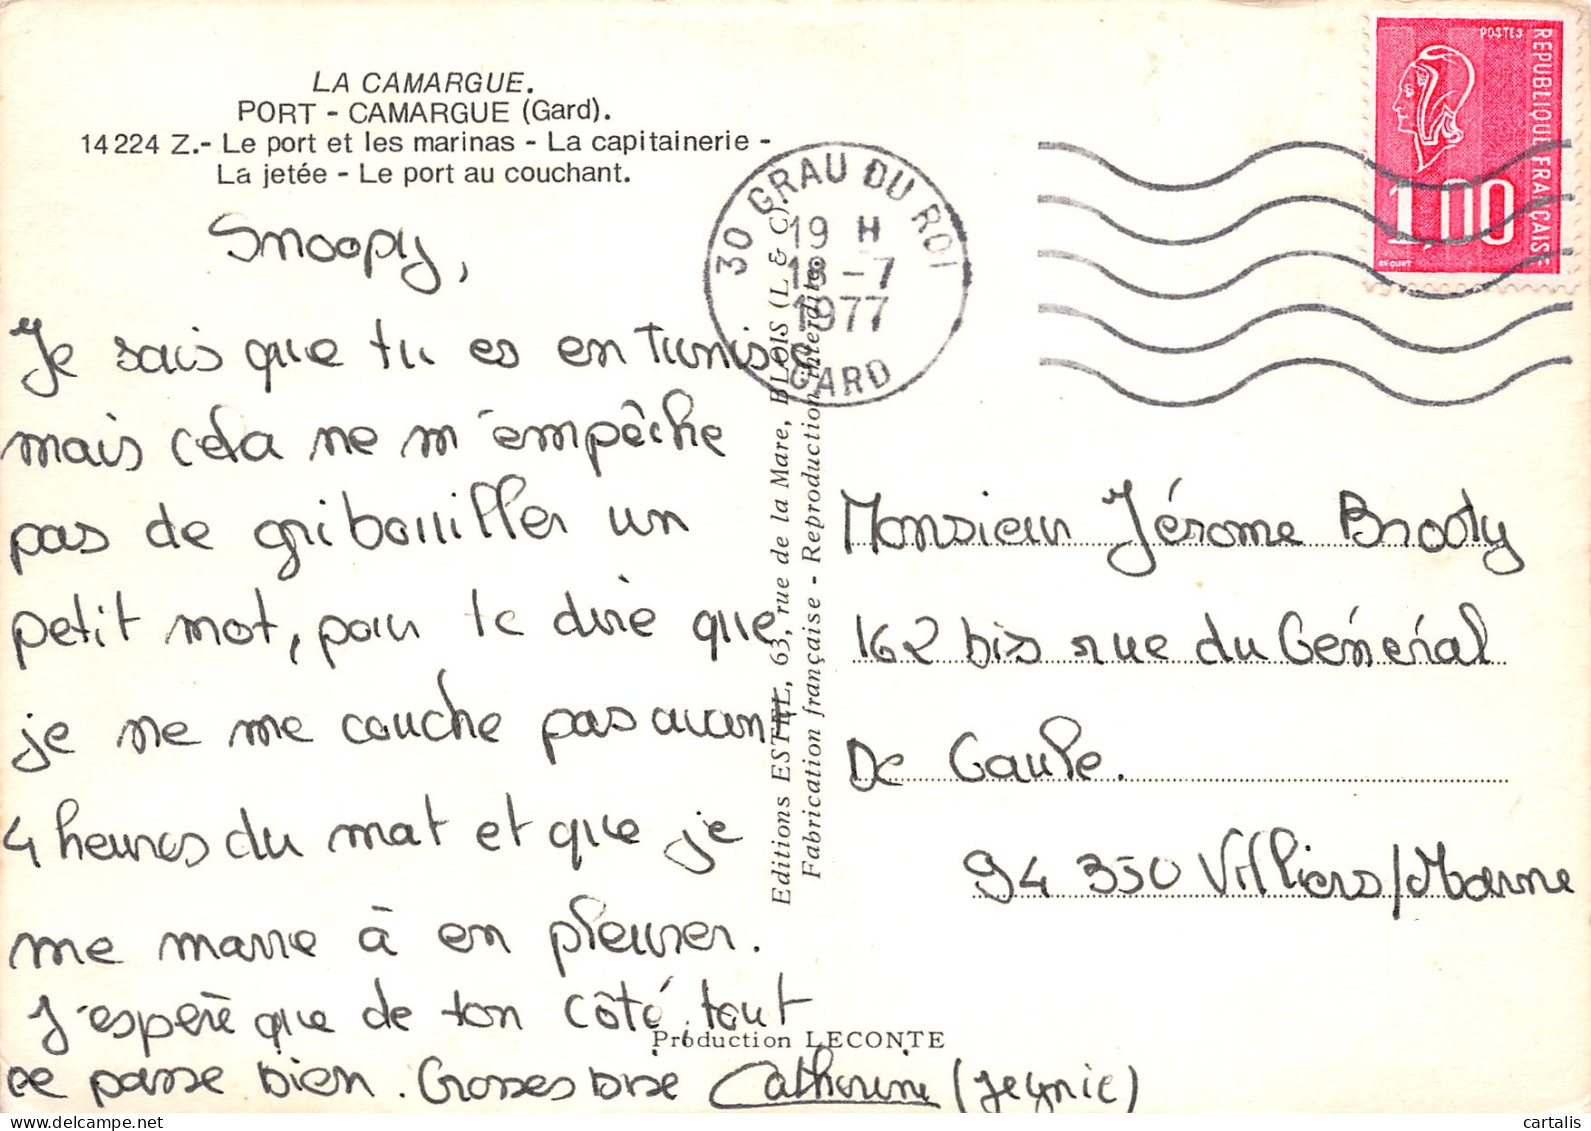 LA CAMARGUE.
PORT - CAMARGUE (Gard).
14 224 Z.- Le port et les marinas - La capitainerie -
La jetée - Le port au couchant.
Snoopy,
Je sais que tu es en Tunisie
mais cela ne m'empêche
pas de gribouiller un
petit mot, pour te dire que
je ne me couche pas avant
4 heures du mat et que je
me marre à en pleurer.
J'espère que de ton côté tout
se passe bien. Grosses bise Catherine
Production LECONTE
Editions ESTEL, 63, rue de la Mare, BLOIS (L. & C.)
Fabrication française - Reproduction interdite.
30 GRAU DU ROI
19 H
18 -7
1977
GARD
POSTES
REPUBLIQUE FRANÇAISE
1,00
BEQUET
Monsieur Jérome Brody
162 bis rue du Général
De Gaule.
94 350 Villiers/Marne
cartalis